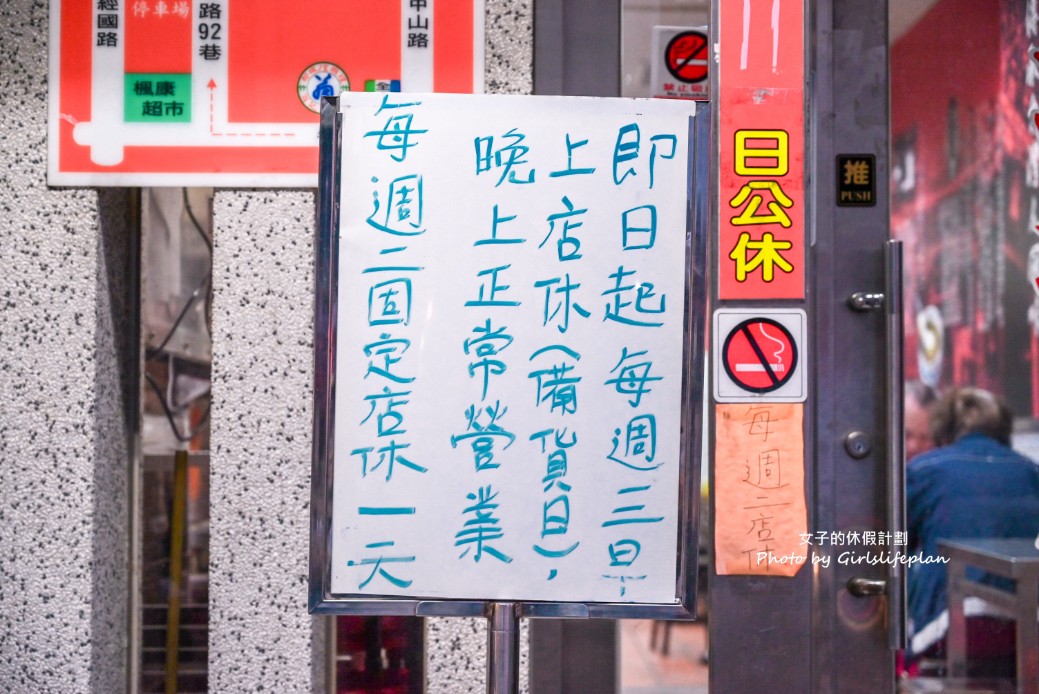 即日起每週三早
上店休(備貨日),
晚上正常營業
每週二固定店休一天
日公休
每週二店休
推
PUSH
經國路
停車場
路92巷
中山路
楓康
超市
女子的休假計劃
Photo by Girlslifeplan